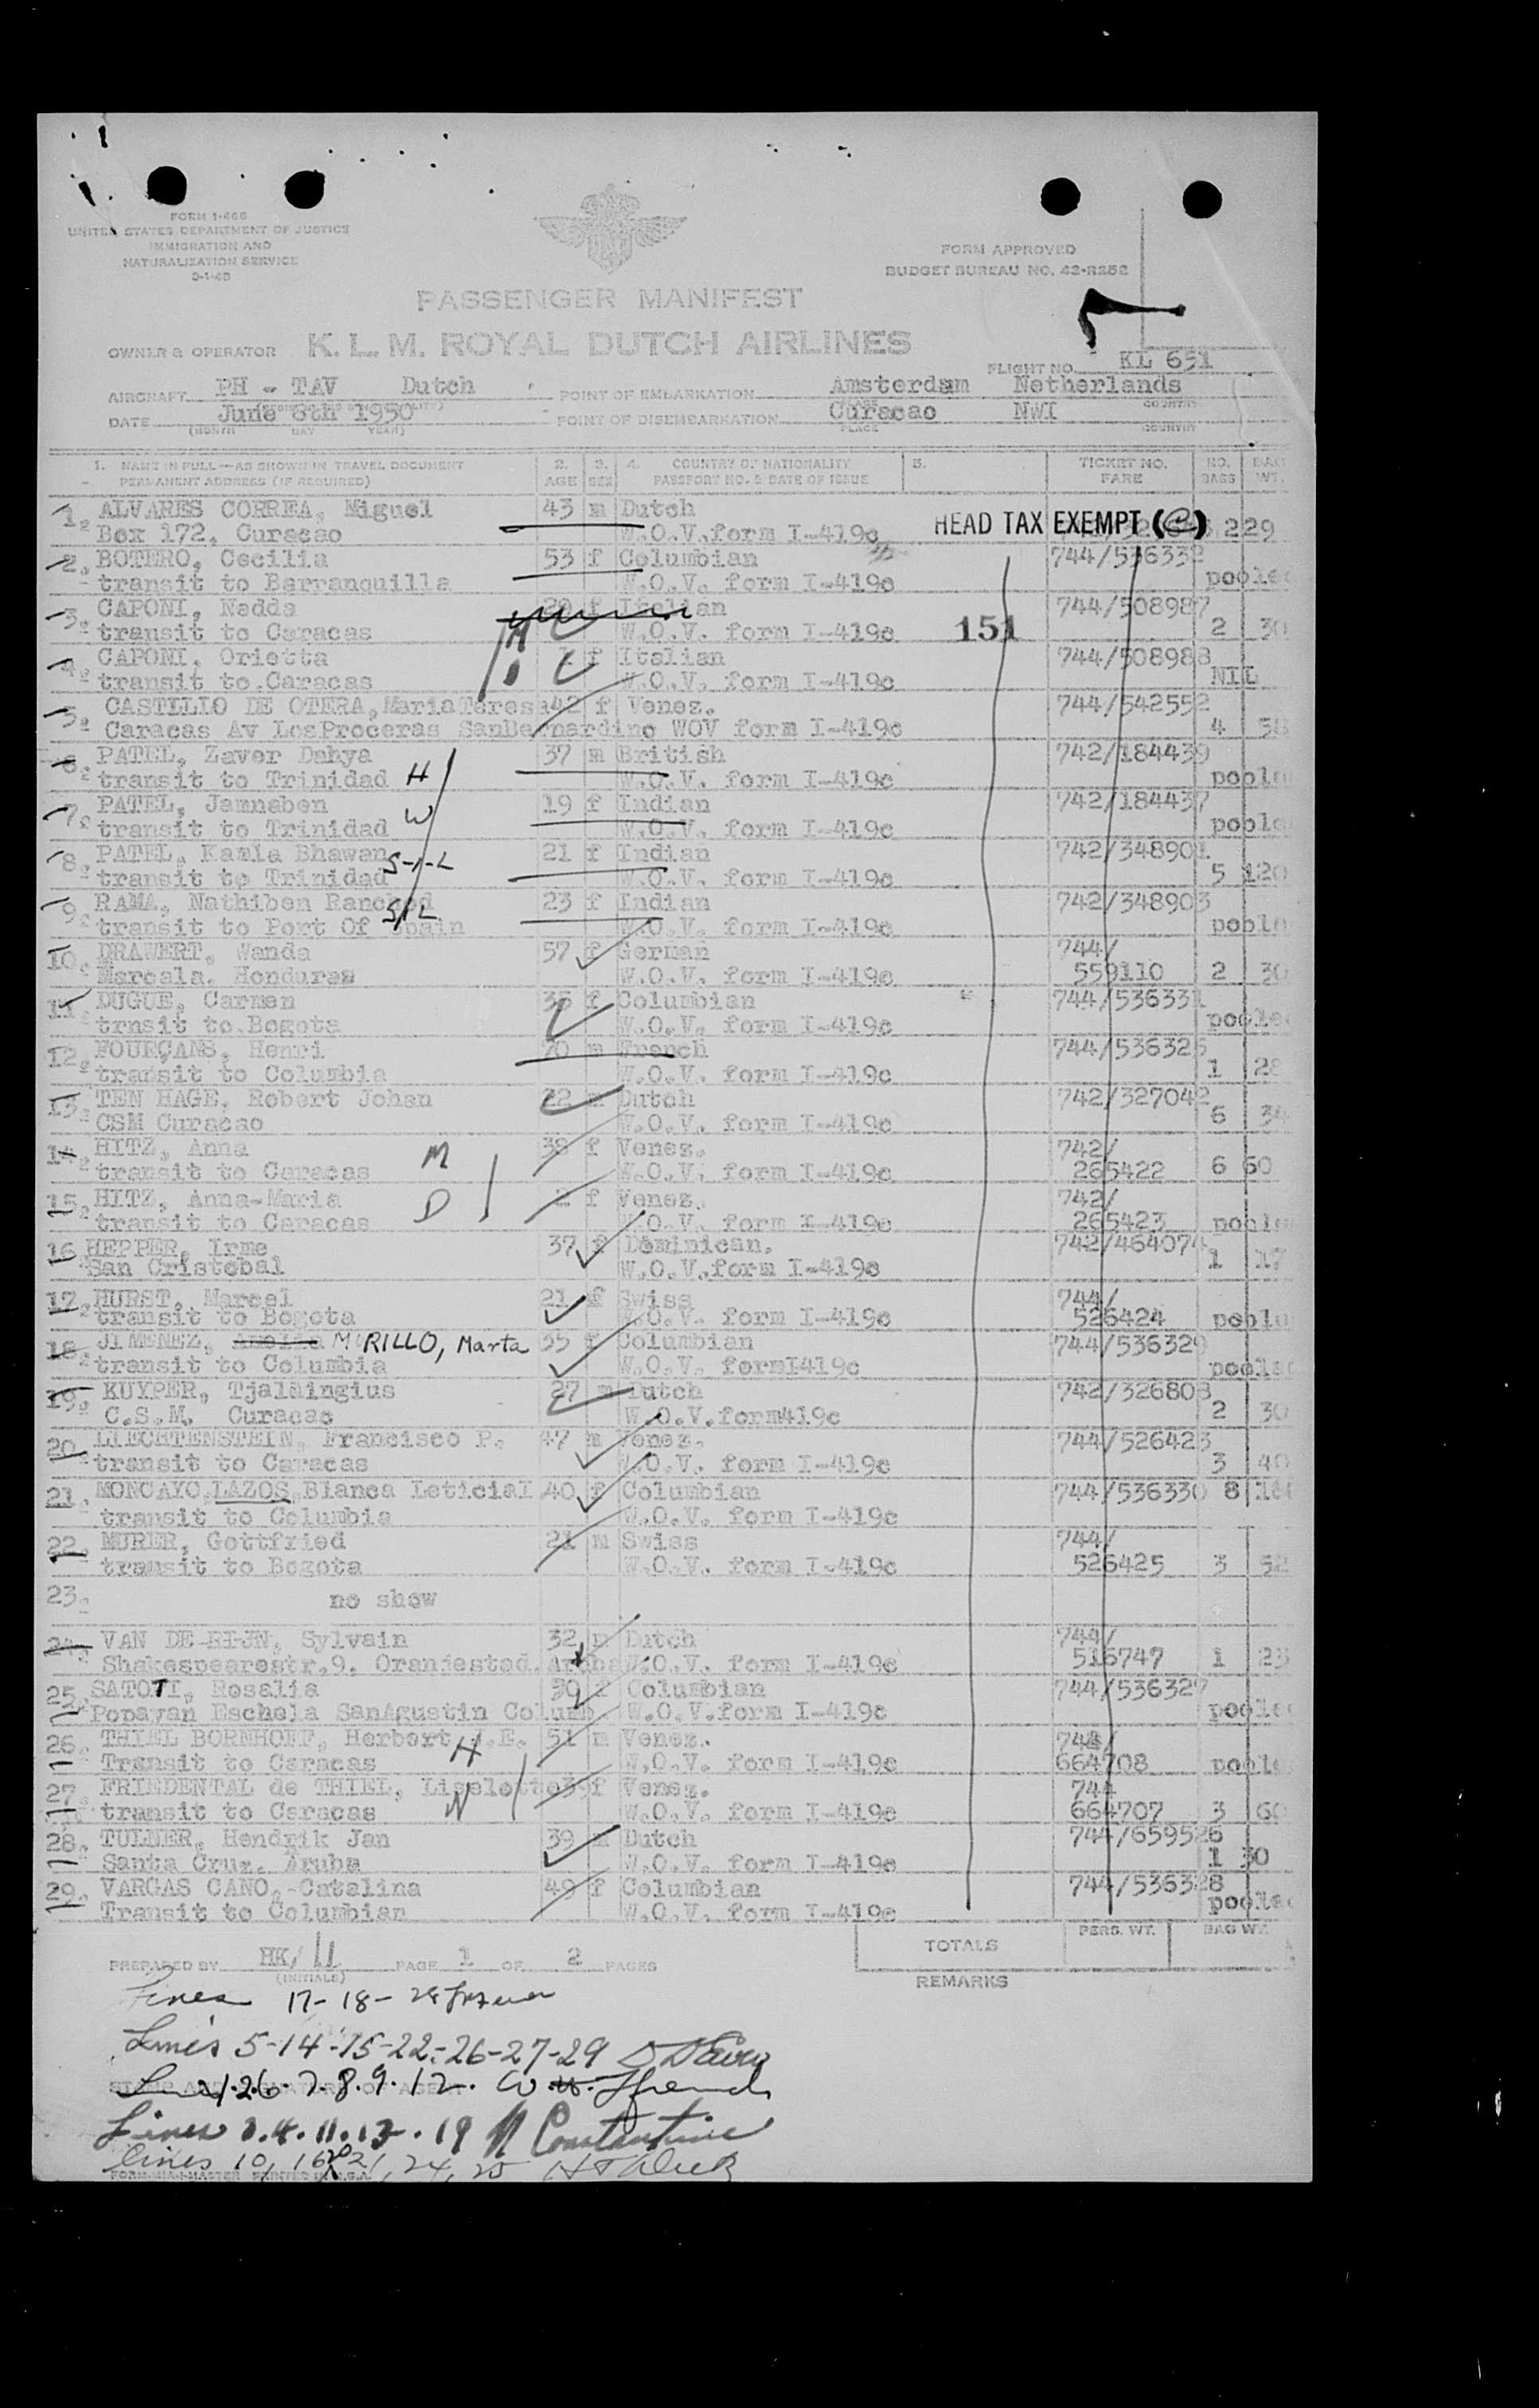 FORM I-466
UNITED STATES DEPARTMENT OF JUSTICE
IMMIGRATION AND
NATURALIZATION SERVICE
FORM APPROVED
BUDGET BUREAU NO. 43-R252
PASSENGER MANIFEST
OWNER & OPERATOR K. L. M. ROYAL DUTCH AIRLINES
FLIGHT NO. KL 651
AIRCRAFT PH - TAV Dutch POINT OF EMBARKATION Amsterdam Netherlands
DATE June 8th 1950 POINT OF DISEMBARKATION Curacao NWI
(MONTH DAY YEAR) PLACE COUNTRY
1. NAME IN FULL—AS SHOWN IN TRAVEL DOCUMENT 2. 3. 4. COUNTRY OF NATIONALITY 5. TICKET NO. NO. BAG
PERMANENT ADDRESS (IF REQUIRED) AGE SEX PASSPORT NO. & DATE OF ISSUE FARE BAGS WT.
1. ALVARES CORREA, Miguel 43 m Dutch
Box 172, Curacao W.O.V.form I-419c HEAD TAX EXEMPT 229
2. BOTERO, Cecilia 53 f Columbian 744/536332
transit to Barranquilla W.O.V. form I-419c
3. CAPONI, Nedda f Italian 744/508987
transit to Caracas W.O.V. form I-419c 151 2 30
4. CAPONI, Orietta f Italian 744/508988
transit to Caracas W.O.V. form I-419c NIL
5. CASTILLO DE OTERA, Maria Teresa 42 f Venez. 744/542552
Caracas Av LosProceras SanBernardino WOV form I-419c 4
6. PATEL, Zaver Dahya 37 m British 742/184439
transit to Trinidad H W.O.V. form I-419c
7. PATEL, Jamnaben 19 f Indian 742/184437
transit to Trinidad W W.O.V. form I-419c
8. PATEL, Kamla Bhawan 21 f Indian 742/348901
transit to Trinidad S-I-L W.O.V. form I-419c 5 120
9. RAMA, Nathiben Ranchod 23 f Indian 742/348903
transit to Port Of Spain S/L W.O.V. form I-419c
10. DRAWERT, Wanda 57 f German 744/
Marcala, Honduras W.O.V. form I-419c 559110 2 30
11. DUGUE, Carmen 35 f Columbian 744/536331
trnsit to Bogota W.O.V. form I-419c
12. FOURÇANS, Henri 70 m French 744/536326
transit to Columbia W.O.V. form I-419c 1 28
13. TEN HAGE, Robert Johan 22 m Dutch 742/327042
CSM Curacao W.O.V. form I-419c 6 34
14. HITZ, Anna 38 f Venez. 742/
transit to Caracas M W.O.V. form I-419c 265422 6 60
15. HITZ, Anna-Maria 2 f Venez. 742/
transit to Caracas D W.O.V. form I-419c 265423
16. HEPPER, Irme 37 f Dominican. 742/464074
San Cristobal W.O.V.form I-419c 1 17
17. HURST, Marcel 21 f Swiss 744/
transit to Bogota W.O.V. form I-419c 526424
18. JIMENEZ, MURILLO, Marta 35 f Columbian 744/536329
transit to Columbia W.O.V. formI419c
19. KUYPER, Tjalhingius 27 m Dutch 742/326808
C.S.M. Curacao W.O.V.form419c 2 30
20. LIECHTENSTEIN, Francisco P. 47 m Venez. 744/526423
transit to Caracas W.O.V. form I-419c 3 40
21. MONCAYO, LAZOS, Blanca Leticia 40 f Columbian 744/536330 8
transit to Columbia W.O.V. form I-419c
22. MURER, Gottfried 21 m Swiss 744/
transit to Bogota W.O.V. form I-419c 526425 3 52
23. no show
24. VAN DE RIJN, Sylvain 32 m Dutch 744/
Shakespearestr.9. Oranjestad. Aruba W.O.V. form I-419c 516747 1 23
25. SATOTI, Rosalia f Columbian 744/536327
Popayan Eschela SanAgustin Columb. W.O.V.form I-419c
26. THIEL BORNHOFF, Herbert J.E. 51 m Venez. 744/
Transit to Caracas H W.O.V. form I-419c 664708
27. FRIEDENTAL de THIEL, Liselotte f Venez. 744
transit to Caracas W W.O.V. form I-419c 664707 3 60
28. TULNER, Hendrik Jan 39 m Dutch 744/659526
Santa Cruz. Aruba W.O.V. form I-419c 1 30
29. VARGAS CANO, Catalina 49 f Columbian 744/536328
Transit to Columbian W.O.V. form I-419c
TOTALS PERS. WT. BAG WT.
PREPARED BY HK/ PAGE 1 OF 2 PAGES
(INITIALS)
REMARKS
17-18-28
Lines 5-14-15-22-26-27-29
1.2.6.7.8.9.12.
Lines 3.4.11.13.19 Constantine
lines 10, 16, 20, 21, 24, 25